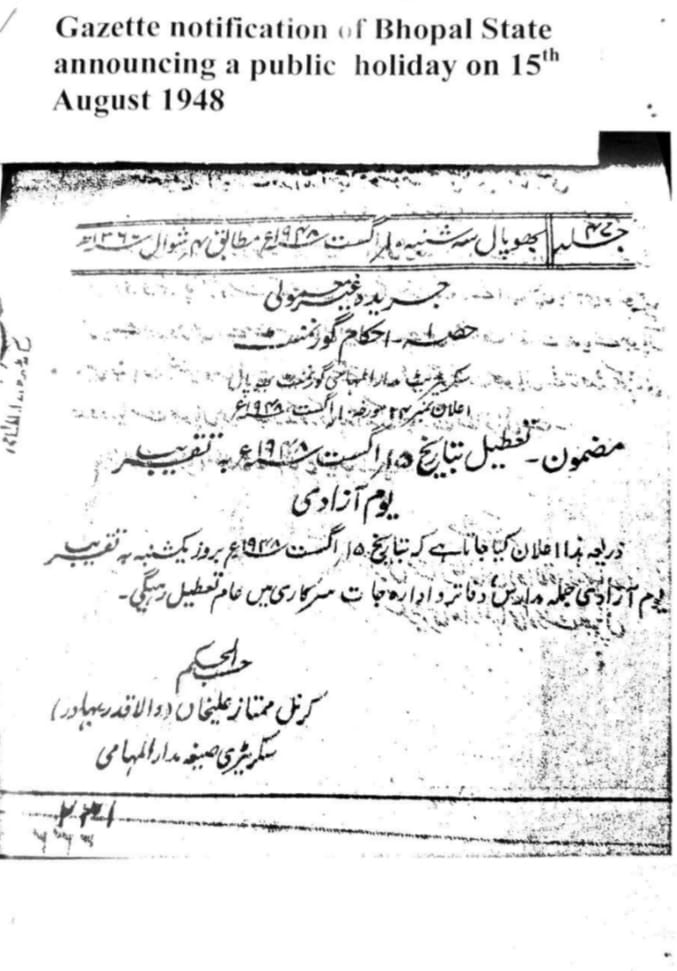 Gazette notification of Bhopal State
announcing a public holiday on 15th
August 1948
جلد ۴۷ بھوپال سہ شنبہ ۱۰ اگست ۱۹۴۸ع مطابق ۴ شوال ۱۳۶۷ھ
جریدہ غیر معمولی
حصہ ۱۔ احکام گورنمنٹ
سکریٹریٹ مدارالمہامی گورنمنٹ بھوپال
اعلان نمبر ۲۴ مورخہ اگست ۱۹۴۸ع
مضمون۔ تعطیل بتاریخ ۱۵ اگست ۱۹۴۸ع بہ تقریب
یوم آزادی
ذریعہ ہذا اعلان کیا جاتا ہے کہ بتاریخ ۱۵ اگست ۱۹۴۸ع بروز یکشنبہ بہ تقریب
یوم آزادی جملہ مدارس، دفاتر و ادارہ جات سرکاری میں عام تعطیل رہیگی۔
حسب الحکم
کرنل ممتاز علیخاں (والا قدر بہادر)
سکریٹری صیغہ مدار المہامی